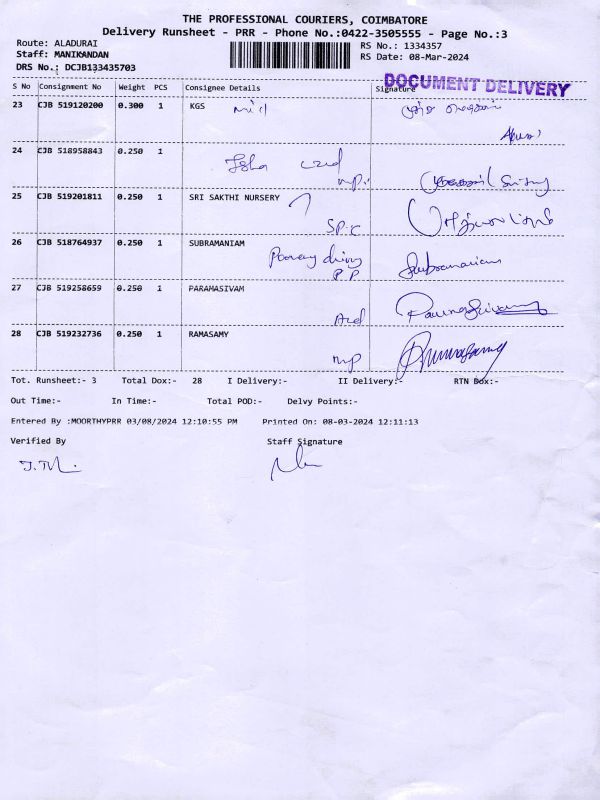 THE PROFESSIONAL COURIERS, COIMBATORE
Delivery Runsheet - PRR - Phone No.:0422-3505555 - Page No.:3
Route: ALADURAI
Staff: MANIKANDAN
DRS No.: DCJB133435703
RS No.: 1334357
RS Date: 08-Mar-2024
DOCUMENT DELIVERY
S No Consignment No Weight PCS Consignee Details Signature
23 CJB 519120200 0.300 1 KGS
24 CJB 518958843 0.250 1
Isha
25 CJB 519201811 0.250 1 SRI SAKTHI NURSERY
26 CJB 518764937 0.250 1 SUBRAMANIAM
Subramaniam
27 CJB 519258659 0.250 1 PARAMASIVAM
28 CJB 519232736 0.250 1 RAMASAMY
Tot. Runsheet:- 3 Total Dox:- 28 I Delivery:- II Delivery:- RTN Box:-
Out Time:- In Time:- Total POD:- Delvy Points:-
Entered By :MOORTHYPRR 03/08/2024 12:10:55 PM Printed On: 08-03-2024 12:11:13
Verified By Staff Signature